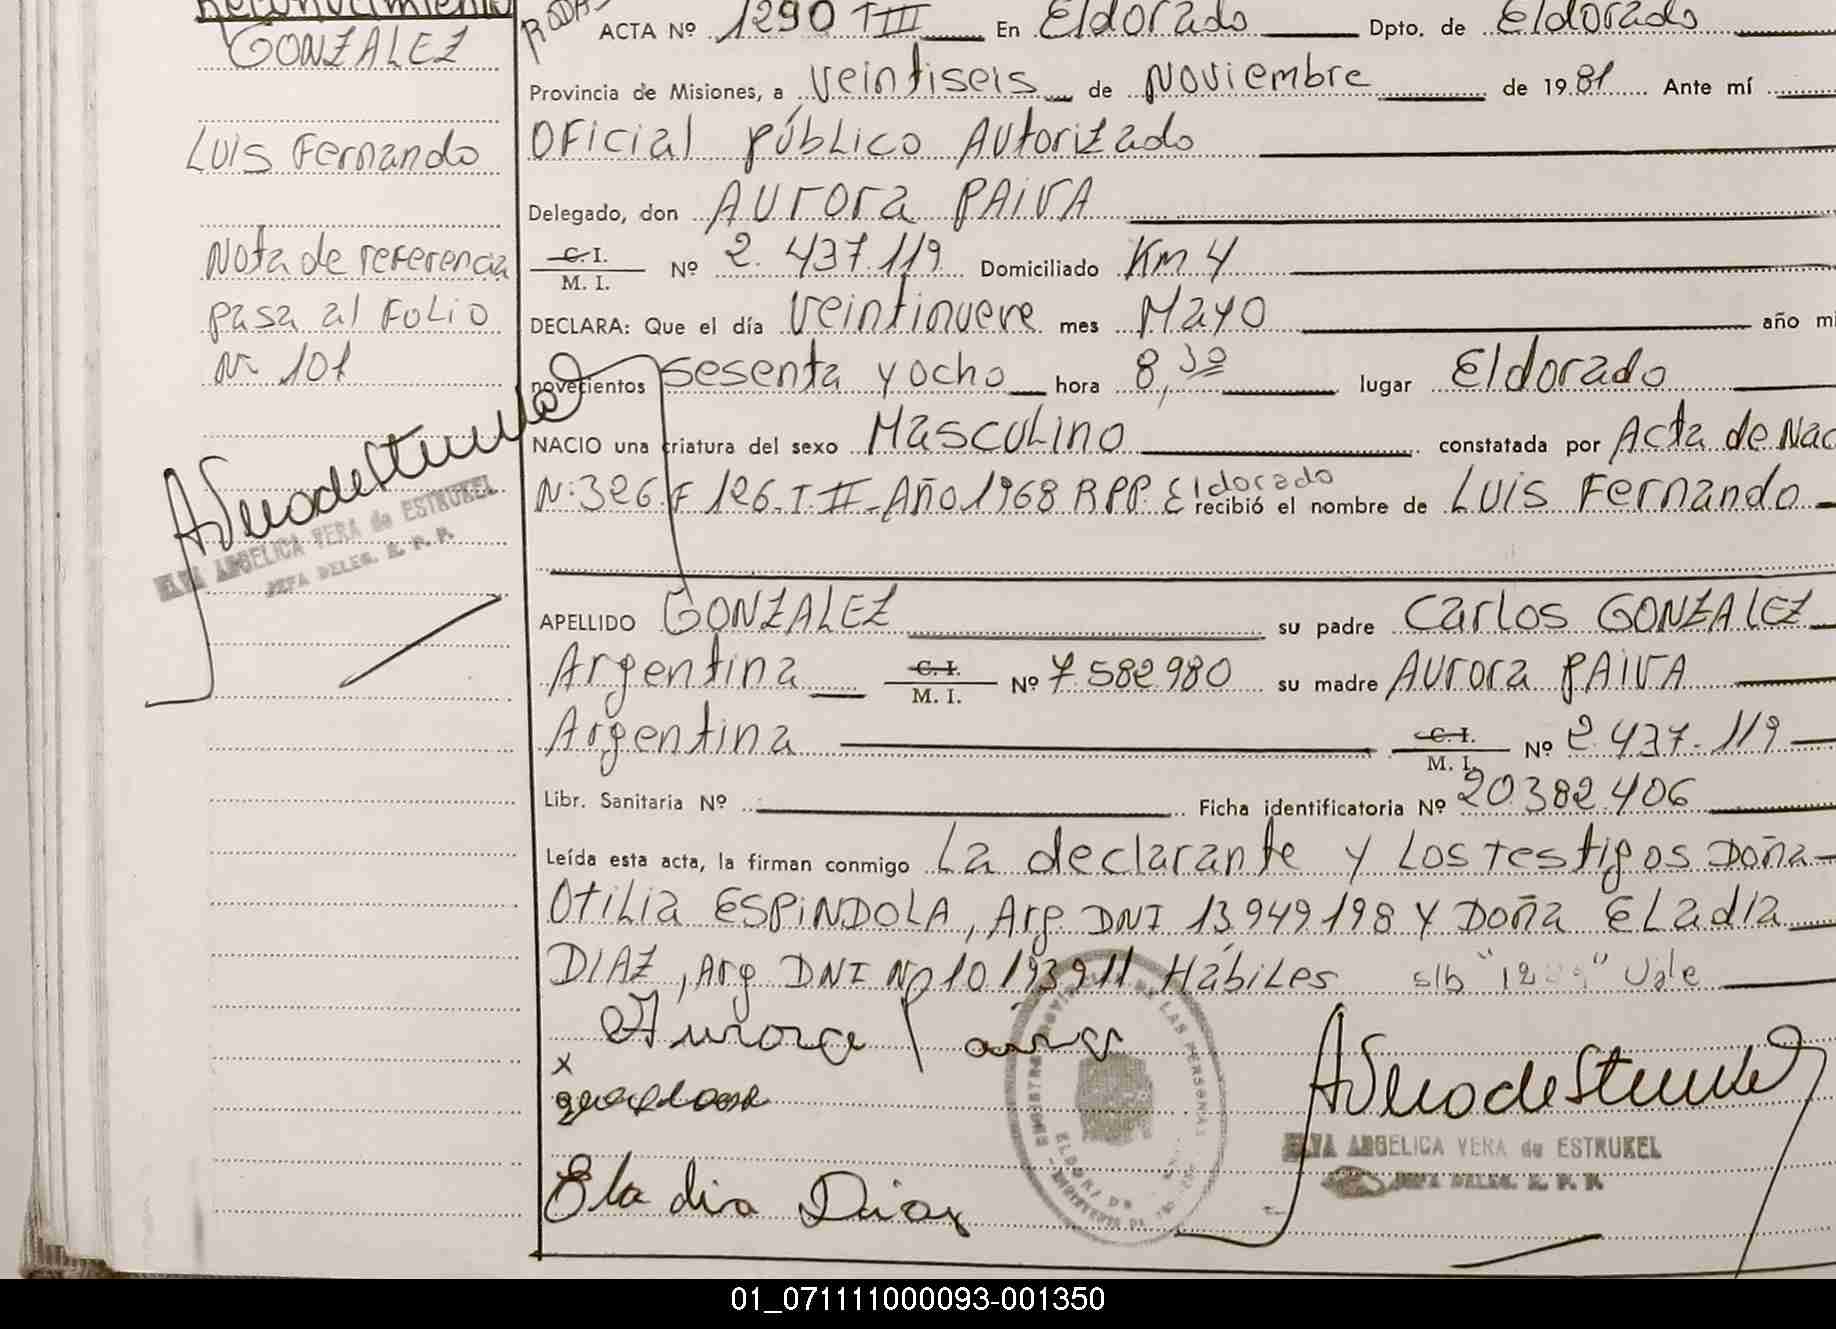 Reconocimiento
GONZALEZ
Luis Fernando
Nota de referencia
pasa al Folio
Nº 101
ELVA ANGELICA VERA de ESTRUKEL
JEFA DELEG. R. P. P.
ACTA Nº 1290 T III En Eldorado Dpto. de Eldorado
Provincia de Misiones, a Veintiseis de Noviembre de 1981 Ante mí
Oficial público Autorizado
Delegado, don Aurora PAIVA
C. I. / M. I. Nº 2.437.119 Domiciliado Km 4
DECLARA: Que el día Veintinueve mes Mayo año mi
novecientos sesenta y ocho hora 8,30 lugar Eldorado
NACIO una criatura del sexo Masculino constatada por Acta de Nac
Nº 326 F 126. T. II - Año 1968 R.P.P. Eldorado recibió el nombre de Luis Fernando
APELLIDO GONZALEZ su padre Carlos GONZALEZ
Argentina C. I. / M. I. Nº 7.582.980 su madre Aurora PAIVA
Argentina C. I. / M. I. Nº 2.437.119
Libr. Sanitaria Nº Ficha identificatoria Nº 20.382.406
Leída esta acta, la firman conmigo La declarante y Los testigos Doña
Otilia ESPINDOLA, Arg. DNI 13.949.198 y Doña Eladia
DIAZ, Arg. DNI Nº 10.193.911. Hábiles s/b "12" Vale
Aurora Paiva
x
Eladia Diaz
ELVA ANGELICA VERA de ESTRUKEL
JEFA DELEG. R. P. P.
01_071111000093-001350